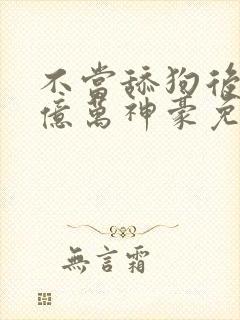 不當舔狗後
億萬神豪免
無言霜